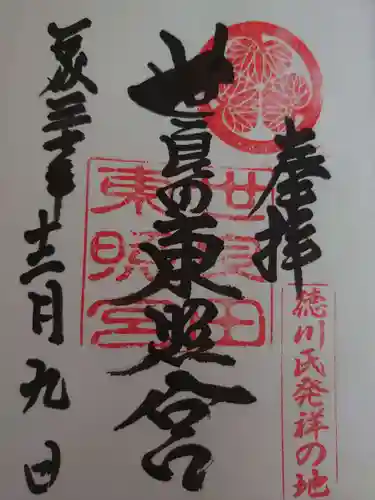 奉拝
徳川氏発祥の地
世良田東照宮
世良田
東照宮
十二月九日